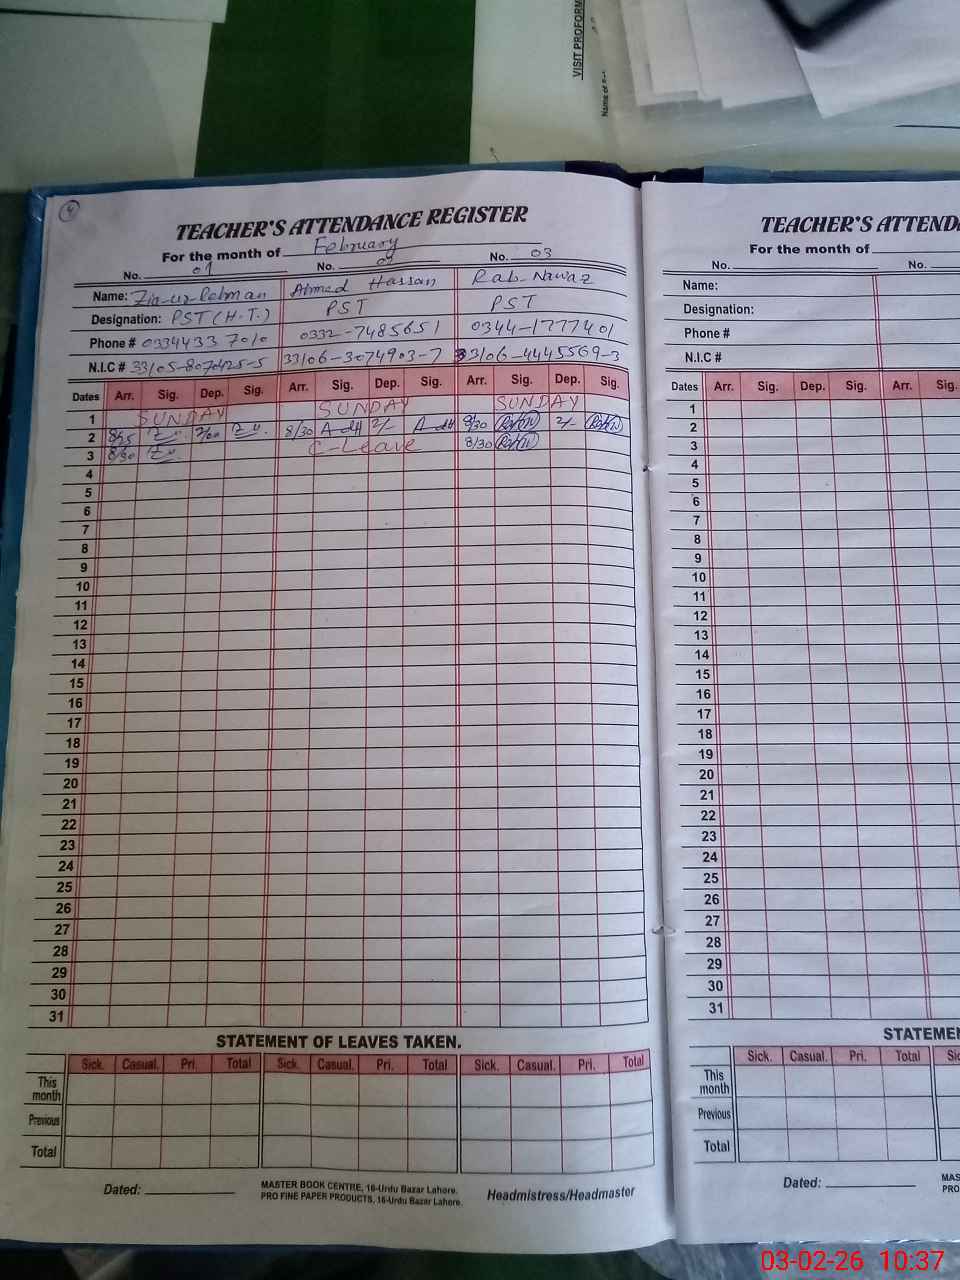 VISIT PROFORM
Name of
4
TEACHER'S ATTENDANCE REGISTER
For the month of February
No. 01 No. 02 No. 03
Name: Zia-ur-Rehman Ahmed Hassan Rab-Nawaz
Designation: PST (H.T.) PST PST
Phone # 0334433 7010 0332-7485651 0344-1777401
N.I.C # 33105-8070425-5 33106-3074903-7 33106-4445569-3
Dates Arr. Sig. Dep. Sig. Arr. Sig. Dep. Sig. Arr. Sig. Dep. Sig.
1 SUNDAY SUNDAY SUNDAY
2 8/25 2/00 8/30 2/- 8/30 2/-
3 8/30 C-Leave 8/30
4
5
6
7
8
9
10
11
12
13
14
15
16
17
18
19
20
21
22
23
24
25
26
27
28
29
30
31
STATEMENT OF LEAVES TAKEN.
Sick. Casual. Pri. Total Sick. Casual. Pri. Total Sick. Casual. Pri. Total
This month
Previous
Total
Dated:
MASTER BOOK CENTRE, 16-Urdu Bazar Lahore.
PRO FINE PAPER PRODUCTS, 16-Urdu Bazar Lahore.
Headmistress/Headmaster
TEACHER'S ATTENDA
For the month of
No. No.
Name:
Designation:
Phone #
N.I.C #
Dates Arr. Sig. Dep. Sig. Arr. Sig.
1
2
3
4
5
6
7
8
9
10
11
12
13
14
15
16
17
18
19
20
21
22
23
24
25
26
27
28
29
30
31
STATEMEN
Sick. Casual. Pri. Total Sic
This month
Previous
Total
Dated:
MAS
PRO
03-02-26 10:37